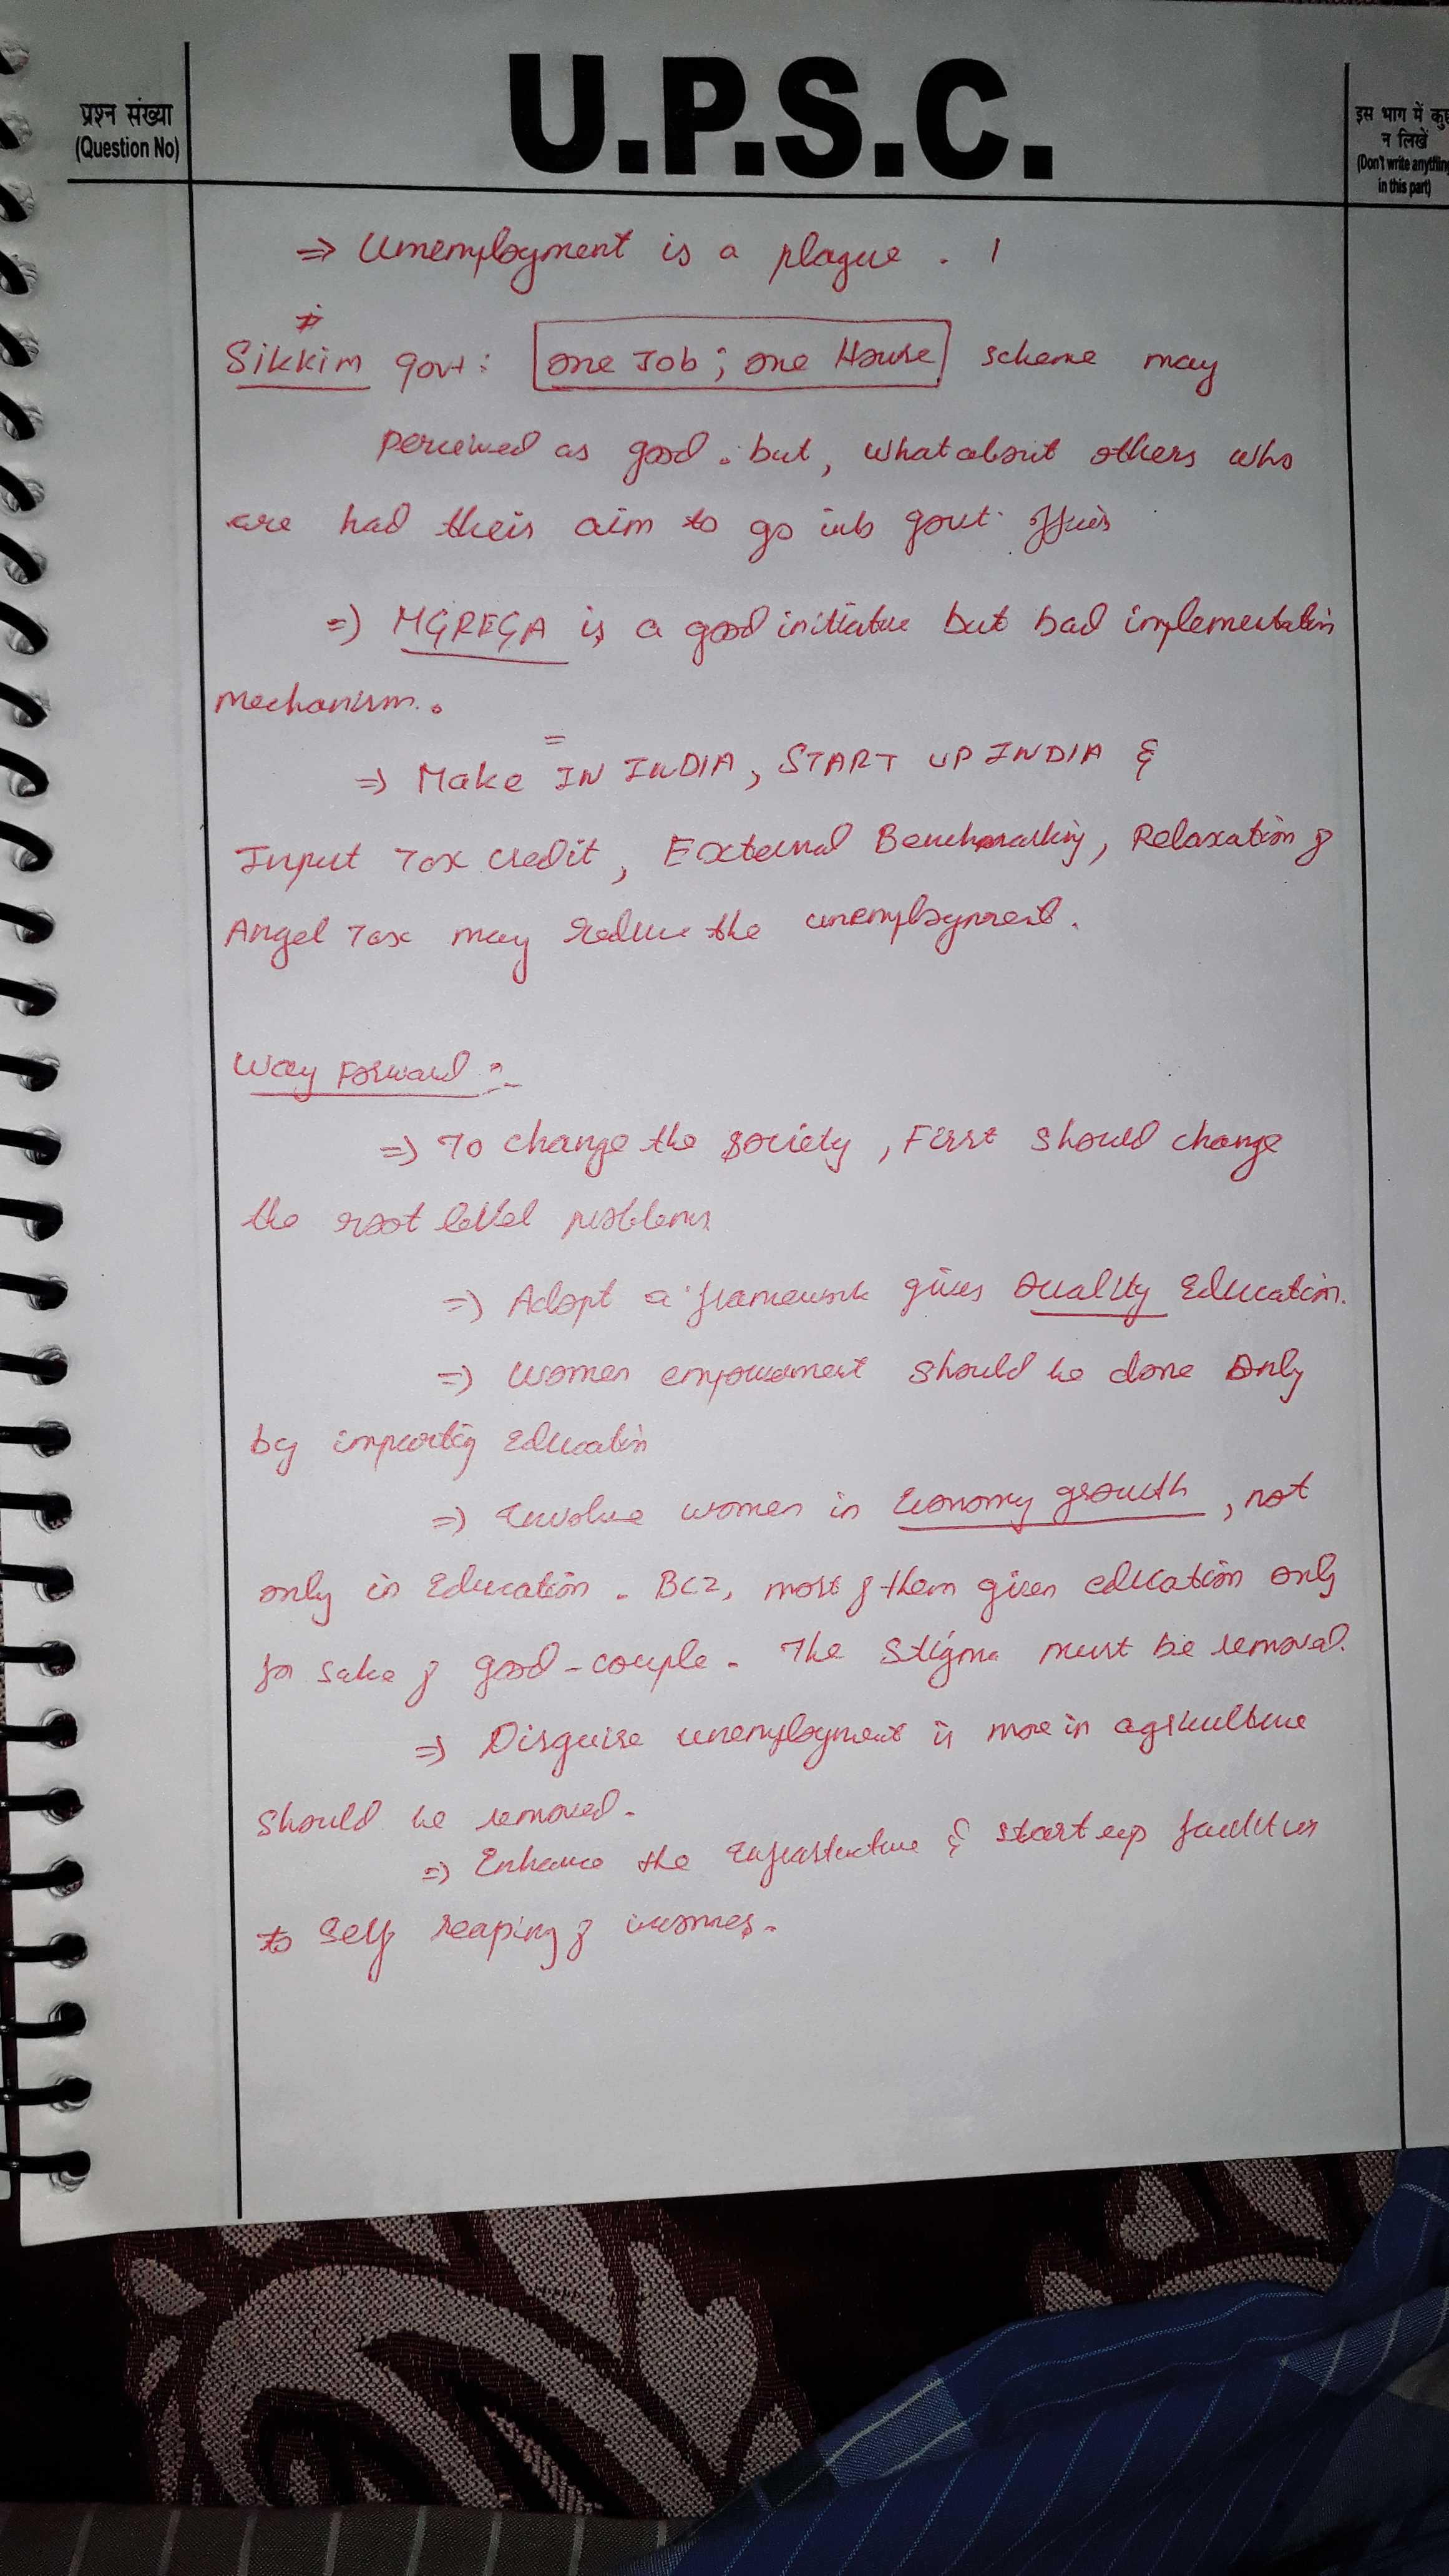 प्रश्न संख्या
(Question No)
U.P.S.C.
इस भाग में कुछ
न लिखें
(Don't write anything
in this part)
⇒ Unemployment is a plague . 1
Sikkim govt: one Job; one House scheme may
perceived as good. but, what about others who
are had their aim to go into govt. offices
⇒ MGREGA is a good initiative but bad implementation
mechanism.
⇒ Make IN INDIA, START UP INDIA &
Input Tax credit, External Benchmarking, Relaxation of
Angel Tax may reduce the unemployment.
Way Forward :-
⇒ To change the society, First should change
the root level problems
⇒ Adopt a framework gives Quality Education.
⇒ Women empowerment should be done Only
by imparting Education
⇒ Involve women in Economy growth, not
only in Education. BCZ, most of them given education only
for sake of good-couple. The Stigma must be removal.
⇒ Disguise unemployment is more in agriculture
should be removed.
⇒ Enhance the Infrastructure & start up facilities
to Self reaping of incomes.